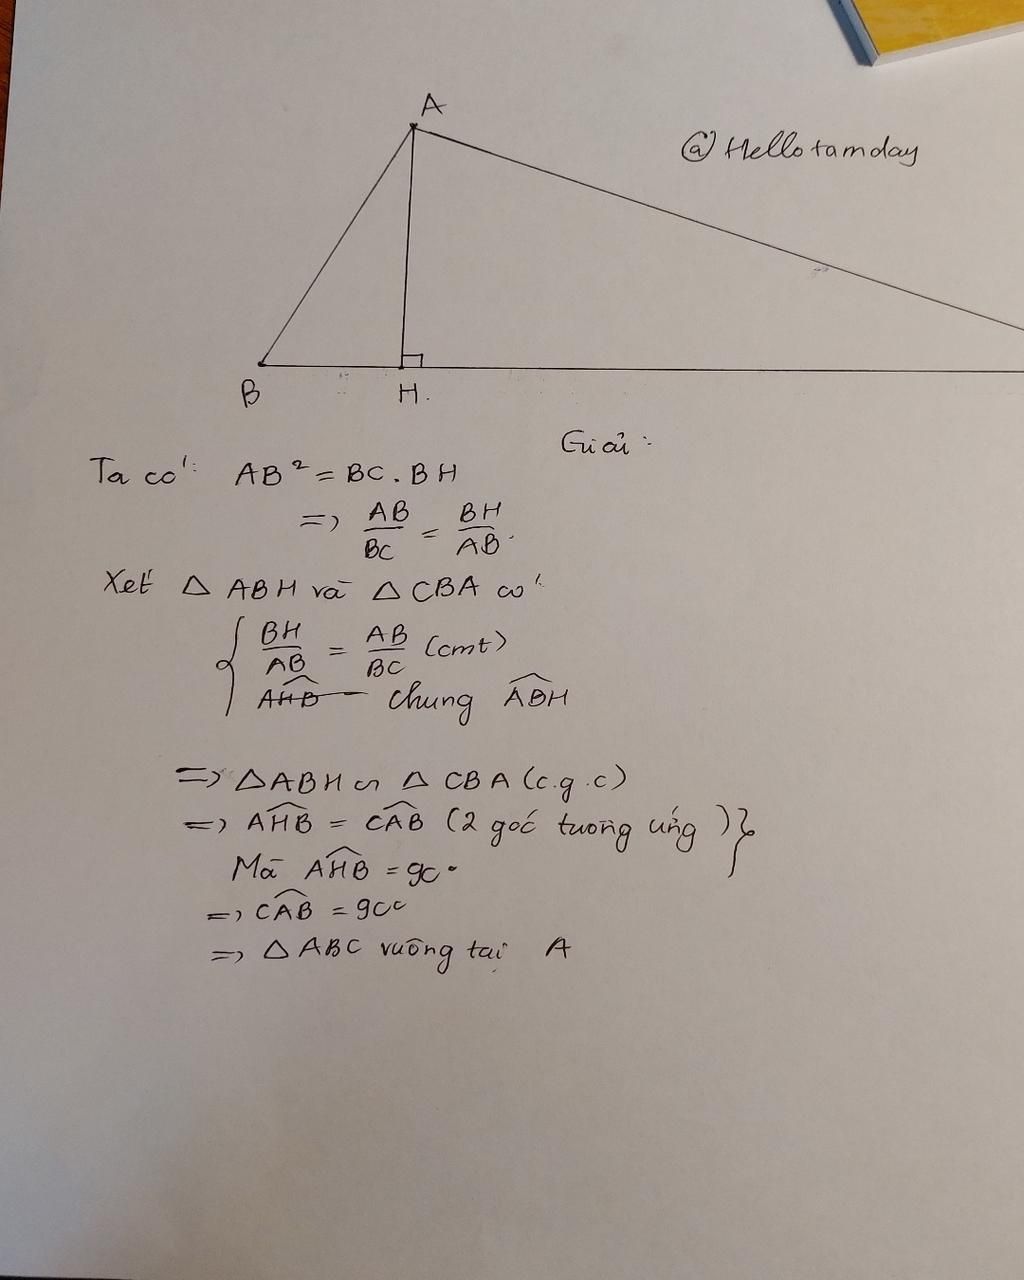 A
@Hellotamday
B
H.
Giải:
Ta có: AB² = BC . BH
=> AB/BC = BH/AB.
Xét △ ABH và △ CBA có:
{ BH/AB = AB/BC (cmt)
~~AHB~~ chung ABH
=> △ABH ∽ △ CBA (c.g.c)
=> AHB = CAB (2 góc tương ứng)}
Mà AHB = 90°
=> CAB = 90°
=> △ ABC vuông tại A